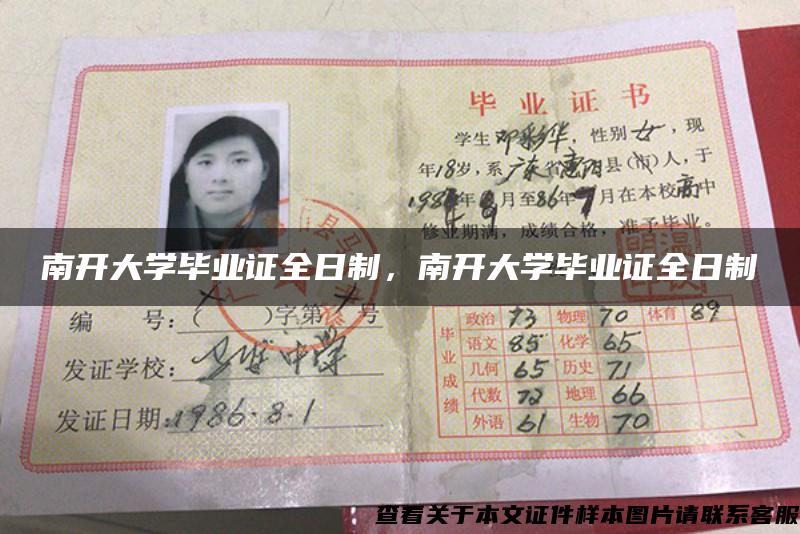 毕业证书
学生邓彩华,性别女,现
年18岁,系广东省惠阳县(市)人,于
198 年9月至86年7月在本校高中
修业期满,成绩合格,准予毕业。
南开大学毕业证全日制，南开大学毕业证全日制
编 号:( )字第 号
发证学校: 中学
发证日期:1986.8.1
毕业成绩
政治 73 物理 70 体育 89
语文 85 化学 65
几何 65 历史 71
代数 72 地理 66
外语 61 生物 70
查看关于本文证件样本图片请联系客服